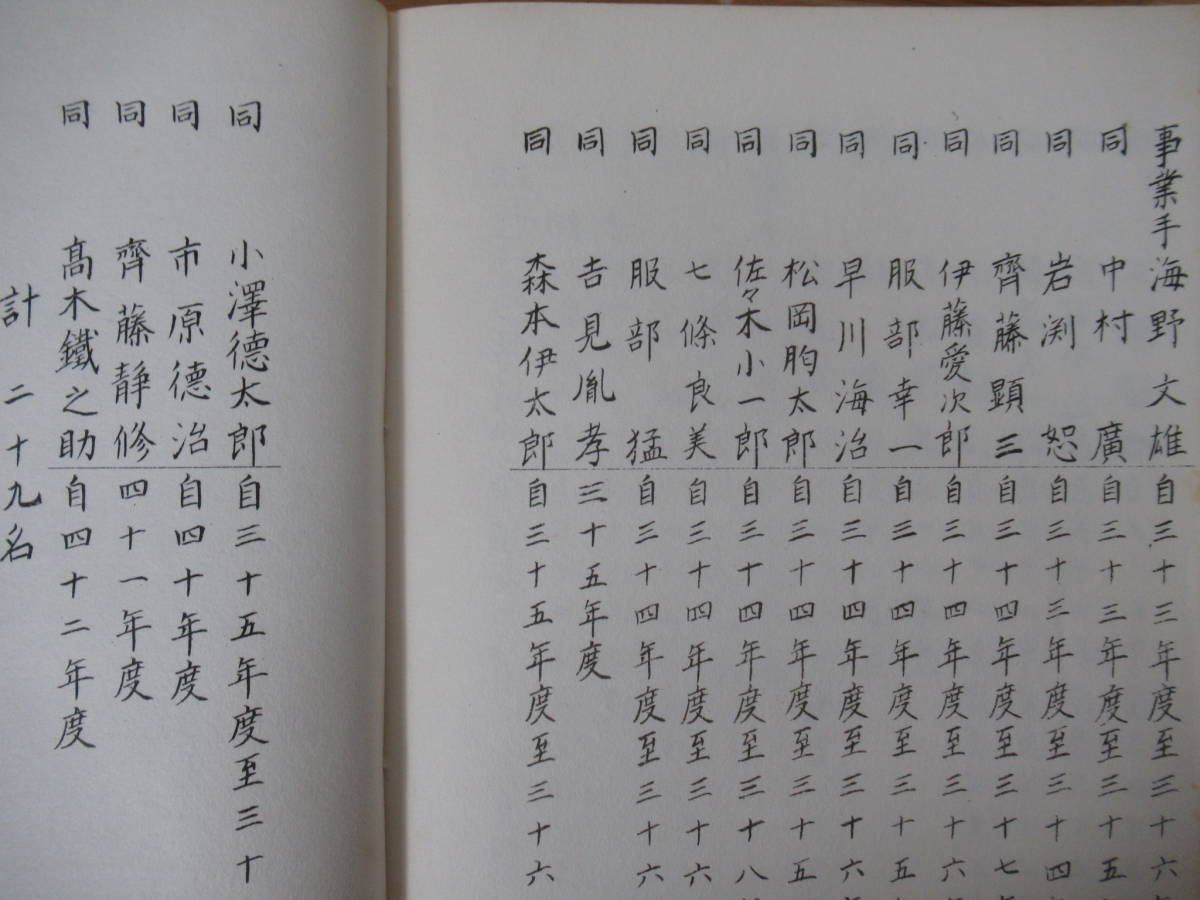 事業手 海野文雄 自三十三年度至三十六年
同 中村廣 自三十三年度至三十五
同 岩渕恕 自三十三年度至三十四
同 齊藤顕三 自三十四年度至三十七年
同 伊藤愛次郎 自三十四年度至三十六
同 服部幸一 自三十四年度至三十五
同 早川海治 自三十四年度至三十六
同 松岡胊太郎 自三十四年度至三十五
同 佐々木小一郎 自三十四年度至三十八
同 七條良美 自三十四年度至三十六
同 服部猛 自三十四年度至三十六
同 吉見胤孝 三十五年度
同 森本伊太郎 自三十五年度至三十六
同 小澤德太郎 自三十五年度至三十
同 市原德治 自四十年度
同 齊藤靜修 四十一年度
同 髙木鐵之助 自四十二年度
計二十九名